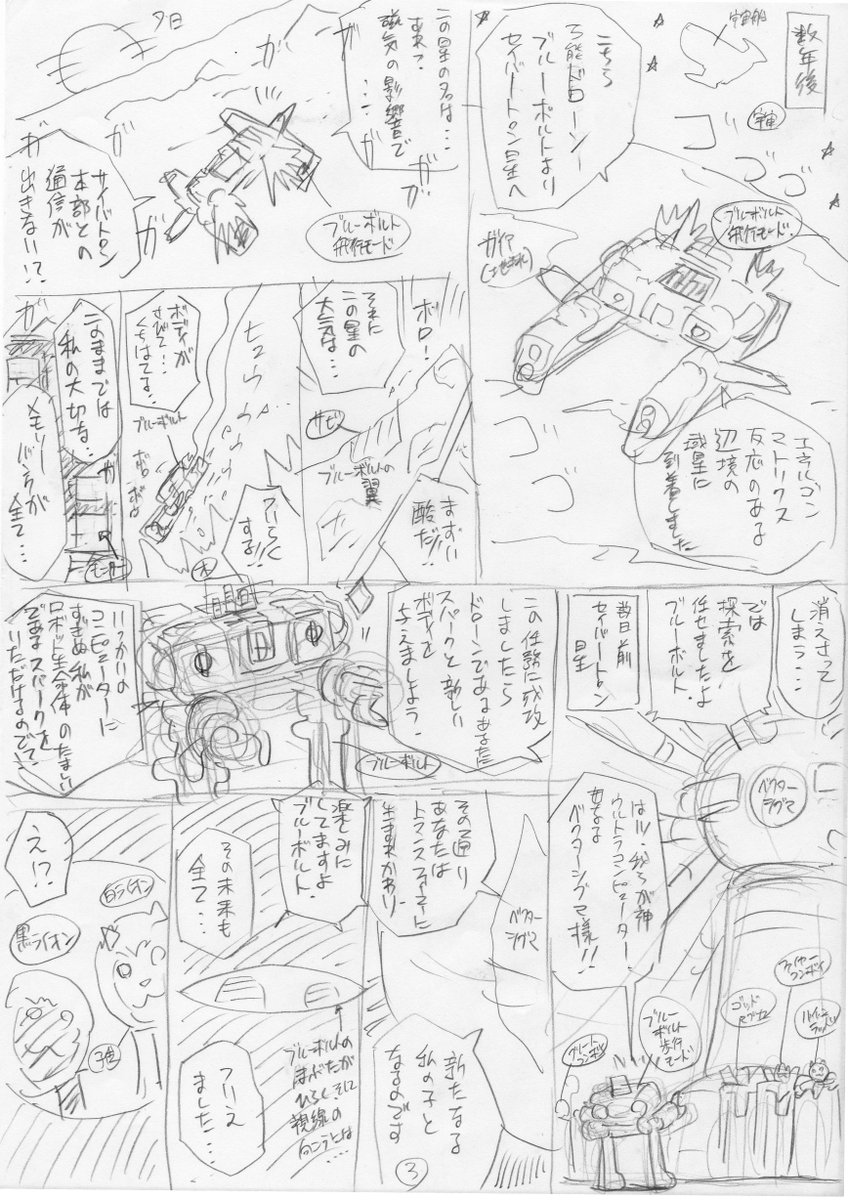 数年後
宇宙船
宇宙
ゴゴ
こちら
万能ドローン
ブルーボルトより
セイバートロン星へ
ブルーボルト
飛行モード
ガイア
(地球)
ゴゴ
エネルゴン
マトリクス
反応のある
辺境の
惑星に
到着しました
夕日
この星の名は…
磁気の影響で
…
ガガ
ガガ
ブルーボルト
飛行モード
サイバトロン
本部との
通信が
出きない!?
ボロ!
それに
この星の
大気は…
サビ
ブルーボルトの
翼
まずい
酸だ!!
ボディが
さびて…
くちはてる…
ブルーボルト
ボロ
ボロ
ついらく
する!!
このままでは
私の大切な…
メモリー
バンクが
全て…
消えさって
しまう…
数日前
セイバートロン
星
では
探索を
任せましたよ
ブルーボルト.
ベクター
シグマ
はい.我らが神
ウルトラコンピューター
母なる
ベクターシグマ様!!
ブルー
ボルト
歩行
モード
グリート
コンボイ
ゴッド
ファイヤー
コンボイ
この任務に成攻
しましたら
ドローンであるあなたに
スパークと新しい
ボディを
与えましよう.
ブルーボルト
いっかいの
コンピューターに
すぎぬ私が
ロボット生命体のたましい
であるスパークを
いただけるのでで
その通り
あなたは
トランスフォーマーに
生まれかわり.
ベクター
シグマ
新たなる
私の子と
なるのです
③
楽しみに
してますよ
ブルーボルト.
その未来も
全て…
ブルーボルトの
まぶたが
ひらくそして
視線の
向こうには…
ついえ
ました…
え!?
白ライオン
黒ライオン